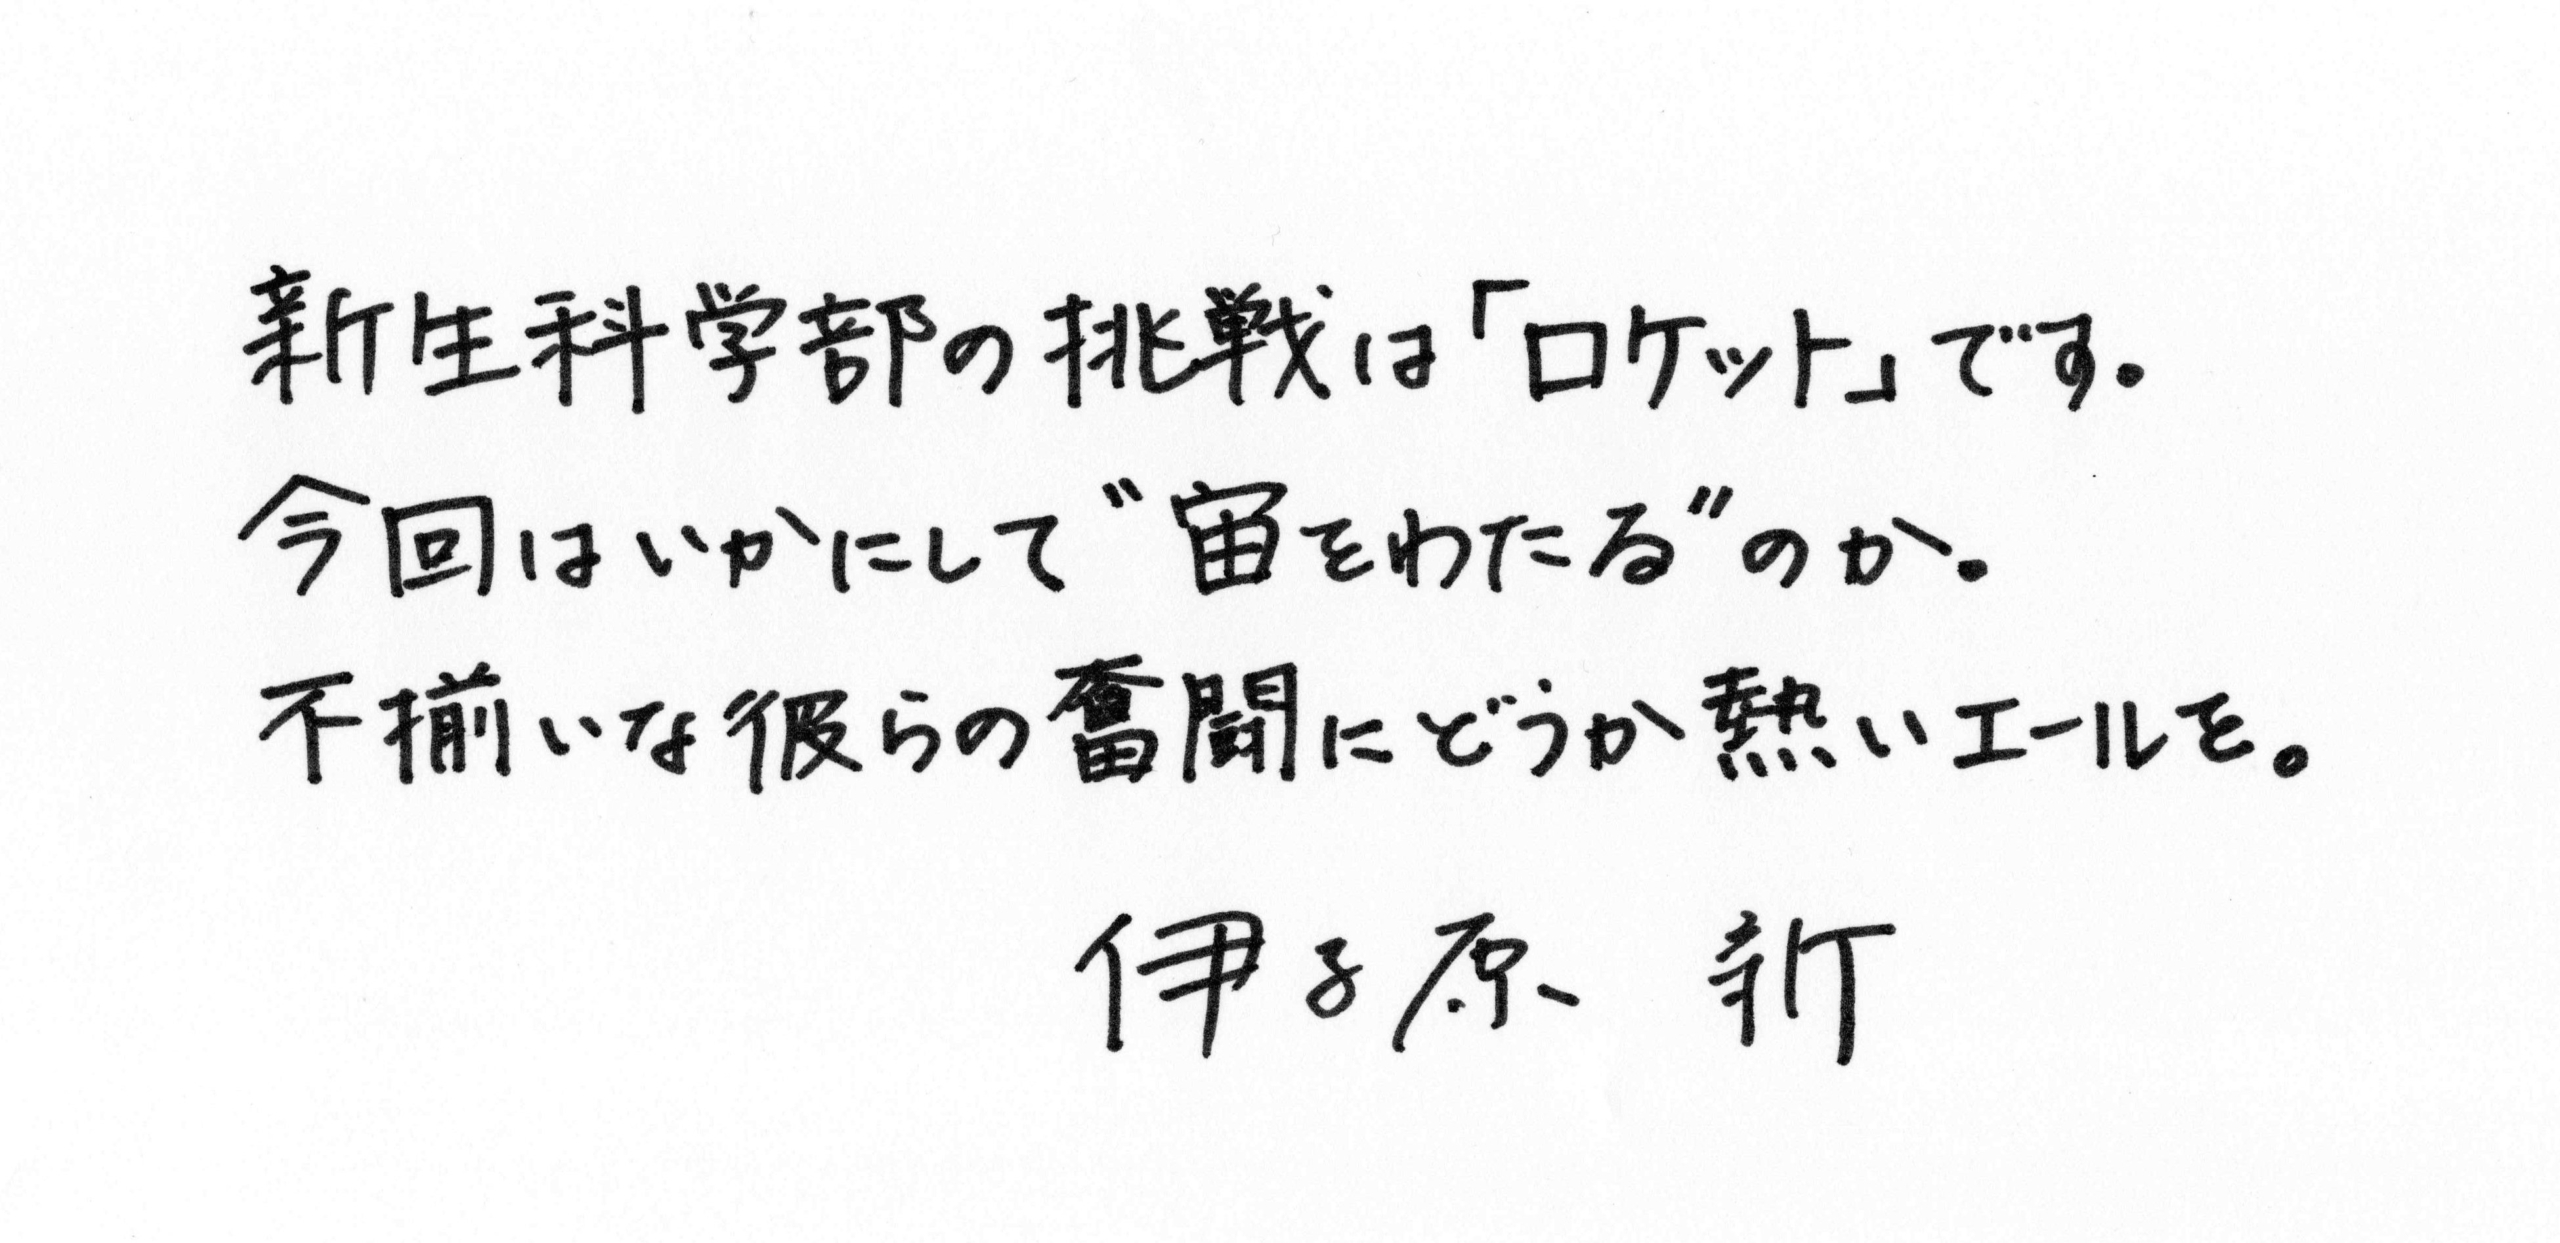 新生科学部の挑戦は「ロケット」です。
今回はいかにして“宙をわたる”のか。
不揃いな彼らの奮闘にどうか熱いエールを。
伊与原 新